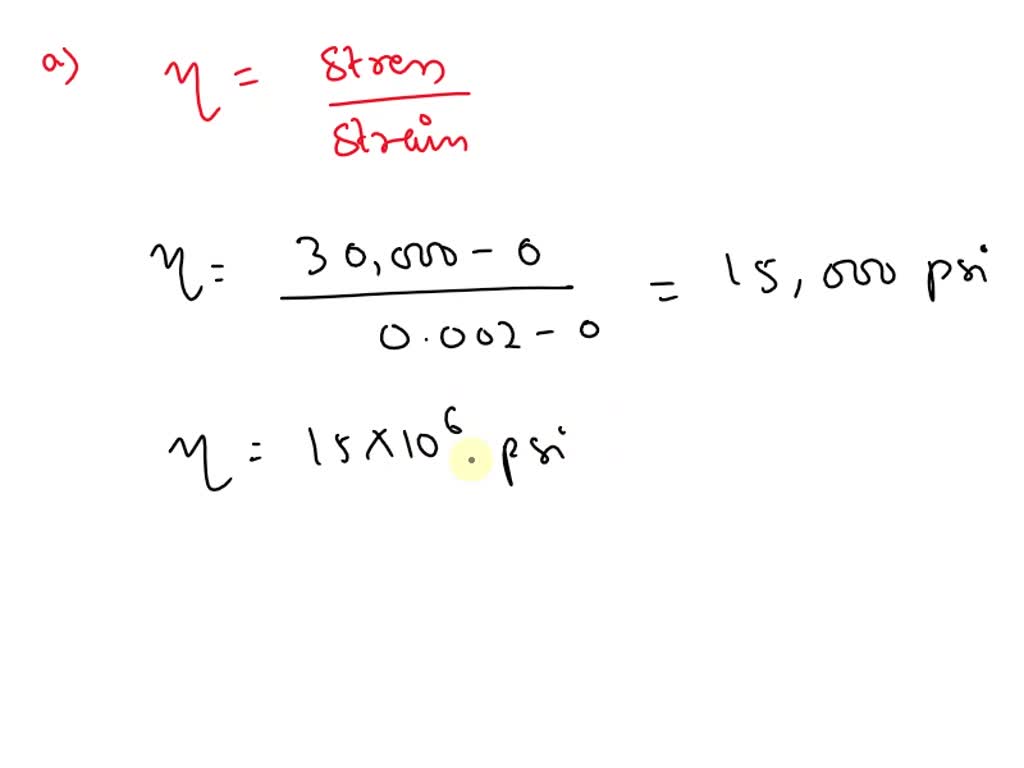 a) η = stress / strain
η = 30,000 - 0 / 0.002 - 0 = 15,000 psi
η = 15×10⁶ psi